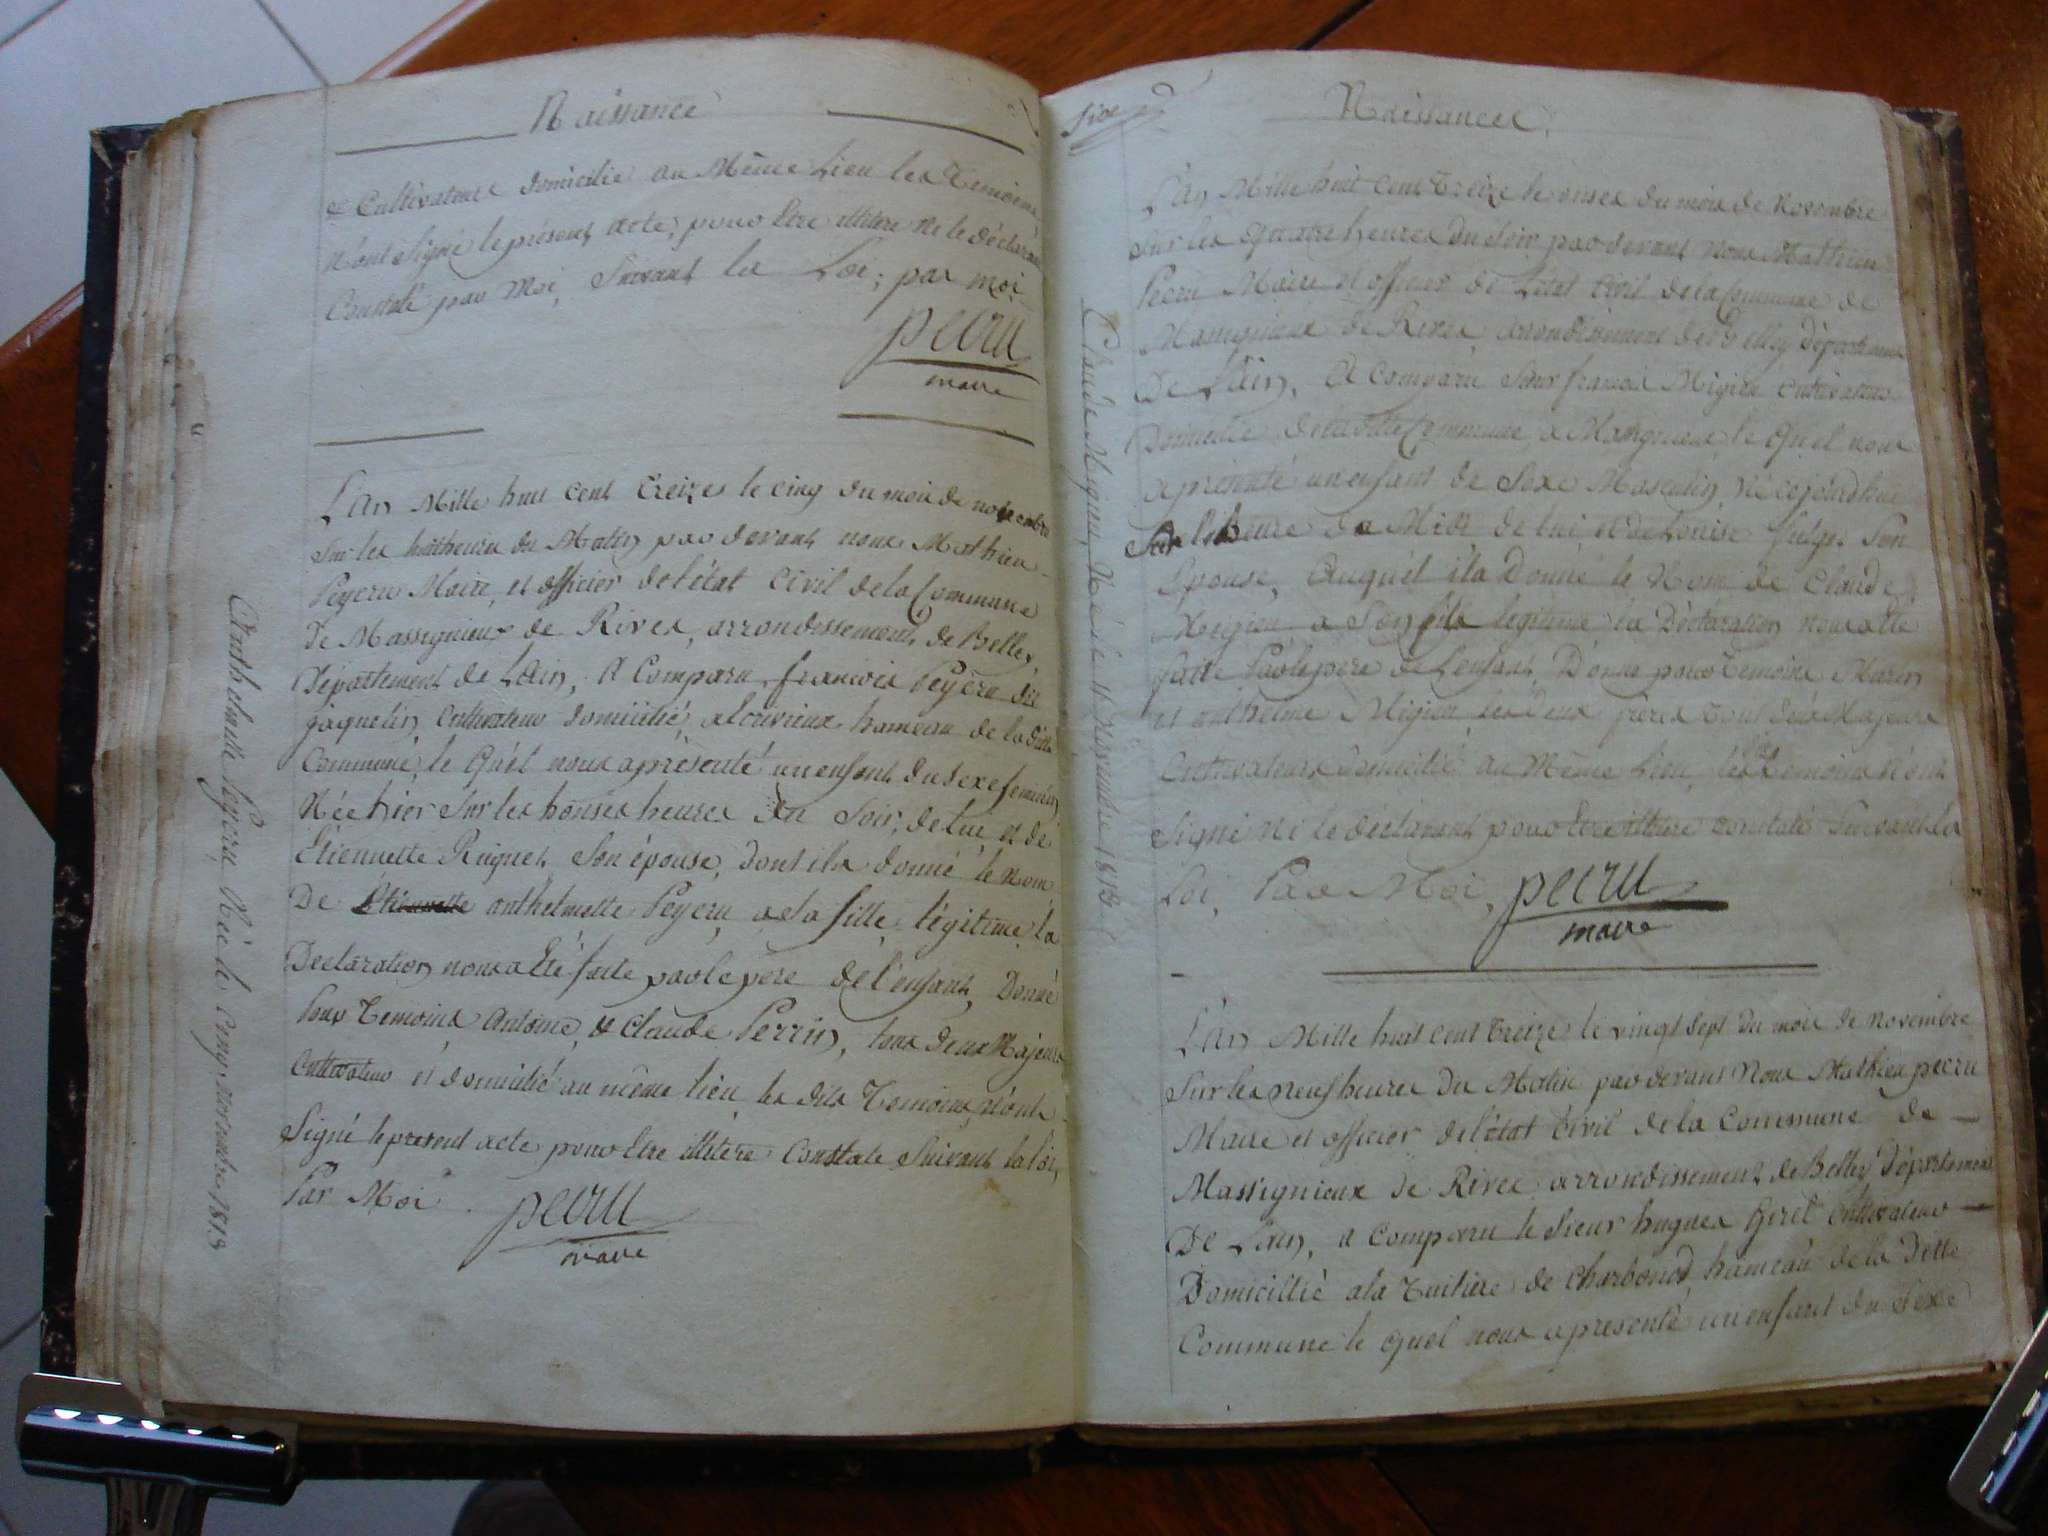 Naissance
& Cultivateur domicilié au Même Lieu les Temoins
N'ont Signé le présent acte, pour Etre illitere Ni le déclarant
Constaté par Moi, Suivant la Loi; par moi
pecru
maire
L'an Mille huit cent treize le cinq du mois de novembre
Sur les huit heures du Matin par devant nous Mathieu
Peyeru Maire, et officier de l'état Civil de la Commune
De Massignieux de Rives, arrondissement de Belley,
Département de L'ain, A Comparu, francois Peyeru dit
jaquelin, Cultivateur domicilié, hameau de la ditte
Commune, le Quel nous a présenté un enfant du sexe feminin
Née hier Sur les honses heures du Soir, de lui et de
Etiennette Ruguet Son épouse, dont il a donné le Nom
De Etiennette anthelmette Peyeru, a la fille légitime, la
Declaration nous a Eté faite par le père de l'enfant, Donné
Pour Temoins, Antoine, & Claude Perrin, tous deux Majeurs
Cultivateurs et domicilié au même lieu les dits Temoins N'ont
Signé le present acte pour Etre illitere Constate Suivant la loi,
Par Moi
pecru
maire
Anthelmette Peyeru Née le Cinq Novembre 1813
Naissances
L'an Mille huit cent Treize le onses du mois de Novembre
Sur les Quatre heures du Soir par devant nous Mathieu
Pecru Maire et officier de L'état Civil de la Commune de
Massignieux de Rives, arrondissement de Belley Département
De L'ain, A Comparu Sieur francois Migieu Cultivateur
Domicilié de la ditte Commune a Massignieux le Quel nous
a présenté un enfant de Sexe Masculin Né cejourdhui
Sur l'heure de Midi de lui et de Louise Son
Epouse, Auquel il a Donné le Nom de Claude
Migieu a Son fils legitime la Déclaration nous a Eté
faitte Par le père de L'enfant, Donné pour Temoins Marin
et anthelme Migieu les deux frères tout deux Majeurs
Cultivateurs Domicilié au Même Lieu, les dits Temoins N'ont
Signé Ni le déclarant pour Etre illitere constaté Suivant la
Loi, Par Moi, pecru
maire
Claude Migieu, Né le 11 Novembre 1813
L'an Mille huit cent treize le vingt sept du mois de Novembre
Sur les neuf heures du Matin par devant Nous Mathieu pecru
Maire et officier de l'état Civil de la Commune de
Massignieux de Rives arrondissement de Belley Département
De L'ain, a comparu le Sieur hugues Cultivateur
Domicillié a la Tuiliere de Charbonod hameau de la Ditte
Commune le quel nous a presenté un enfant du Sexe